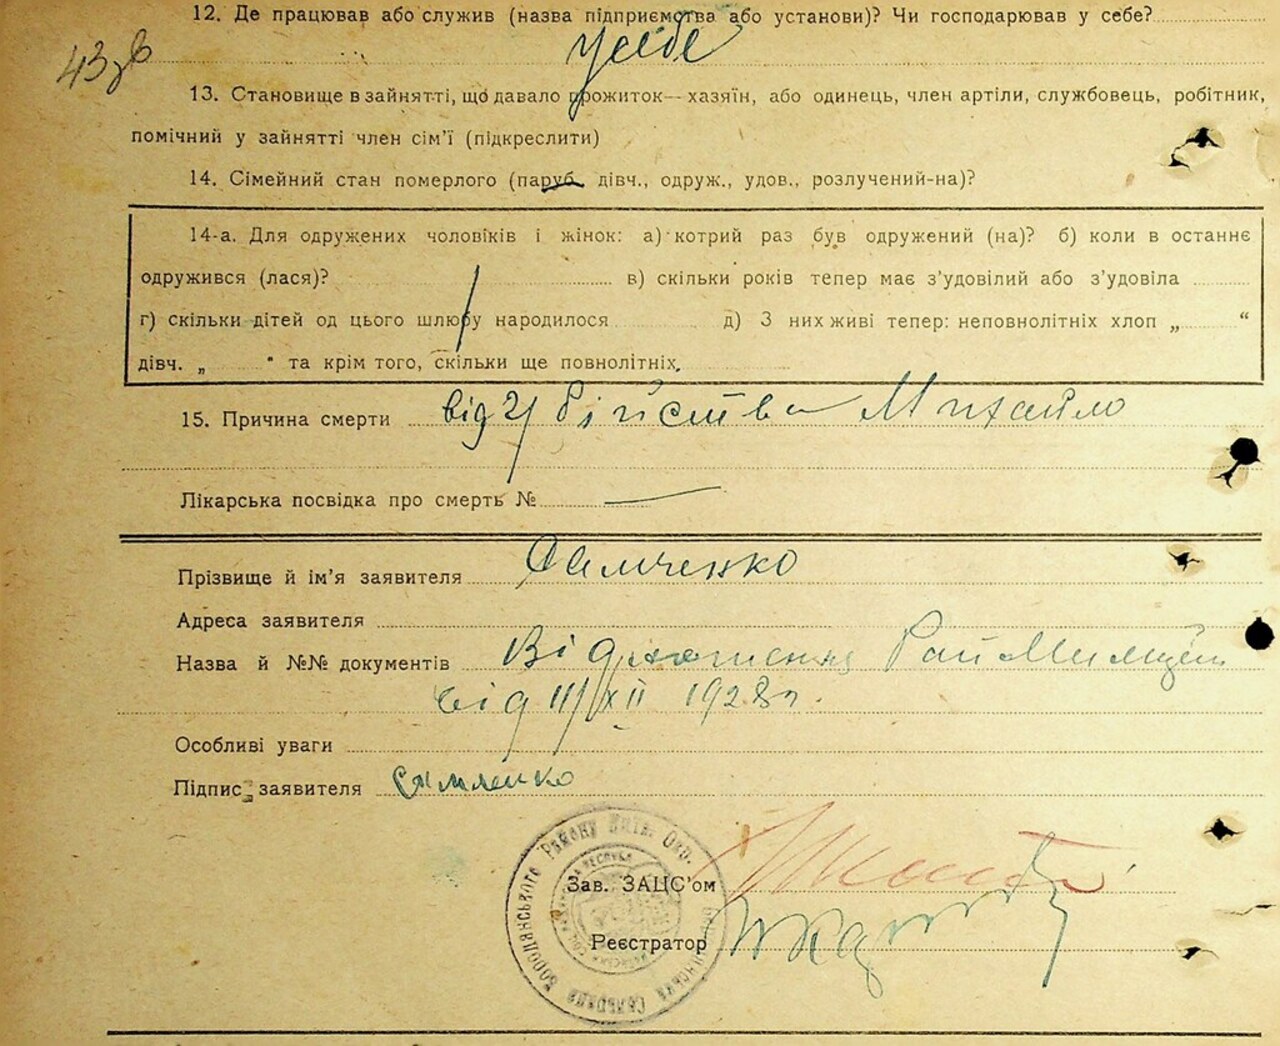 12. Де працював або служив (назва підприємства або установи)? Чи господарював у себе?
у себе
43 зв
13. Становище в зайнятті, що давало прожиток — хазяїн, або одинець, член артіли, службовець, робітник,
помічний у зайнятті член сім’ї (підкреслити)
14. Сімейний стан померлого (паруб. дівч., одруж., удов., розлучений-на)?
14-а. Для одружених чоловіків і жінок: а) котрий раз був одружений (на)? б) коли в останнє
одружився (лася)? в) скільки років тепер має з’удовілий або з’удовіла
г) скільки дітей од цього шлюбу народилося д) З них живі тепер: неповнолітніх хлоп „ “
дівч. „ “ та крім того, скільки ще повнолітніх.
15. Причина смерти від убійства Михайло
Лікарська посвідка про смерть № —
Прізвище й ім’я заявителя
Адреса заявителя
Назва й №№ документів Відношення Рай
від 11/XII 1928 р.
Особливі уваги
Підпис заявителя
Бородянського Району Київ. Окр.
Зав. ЗАЦС’ом
Реєстратор